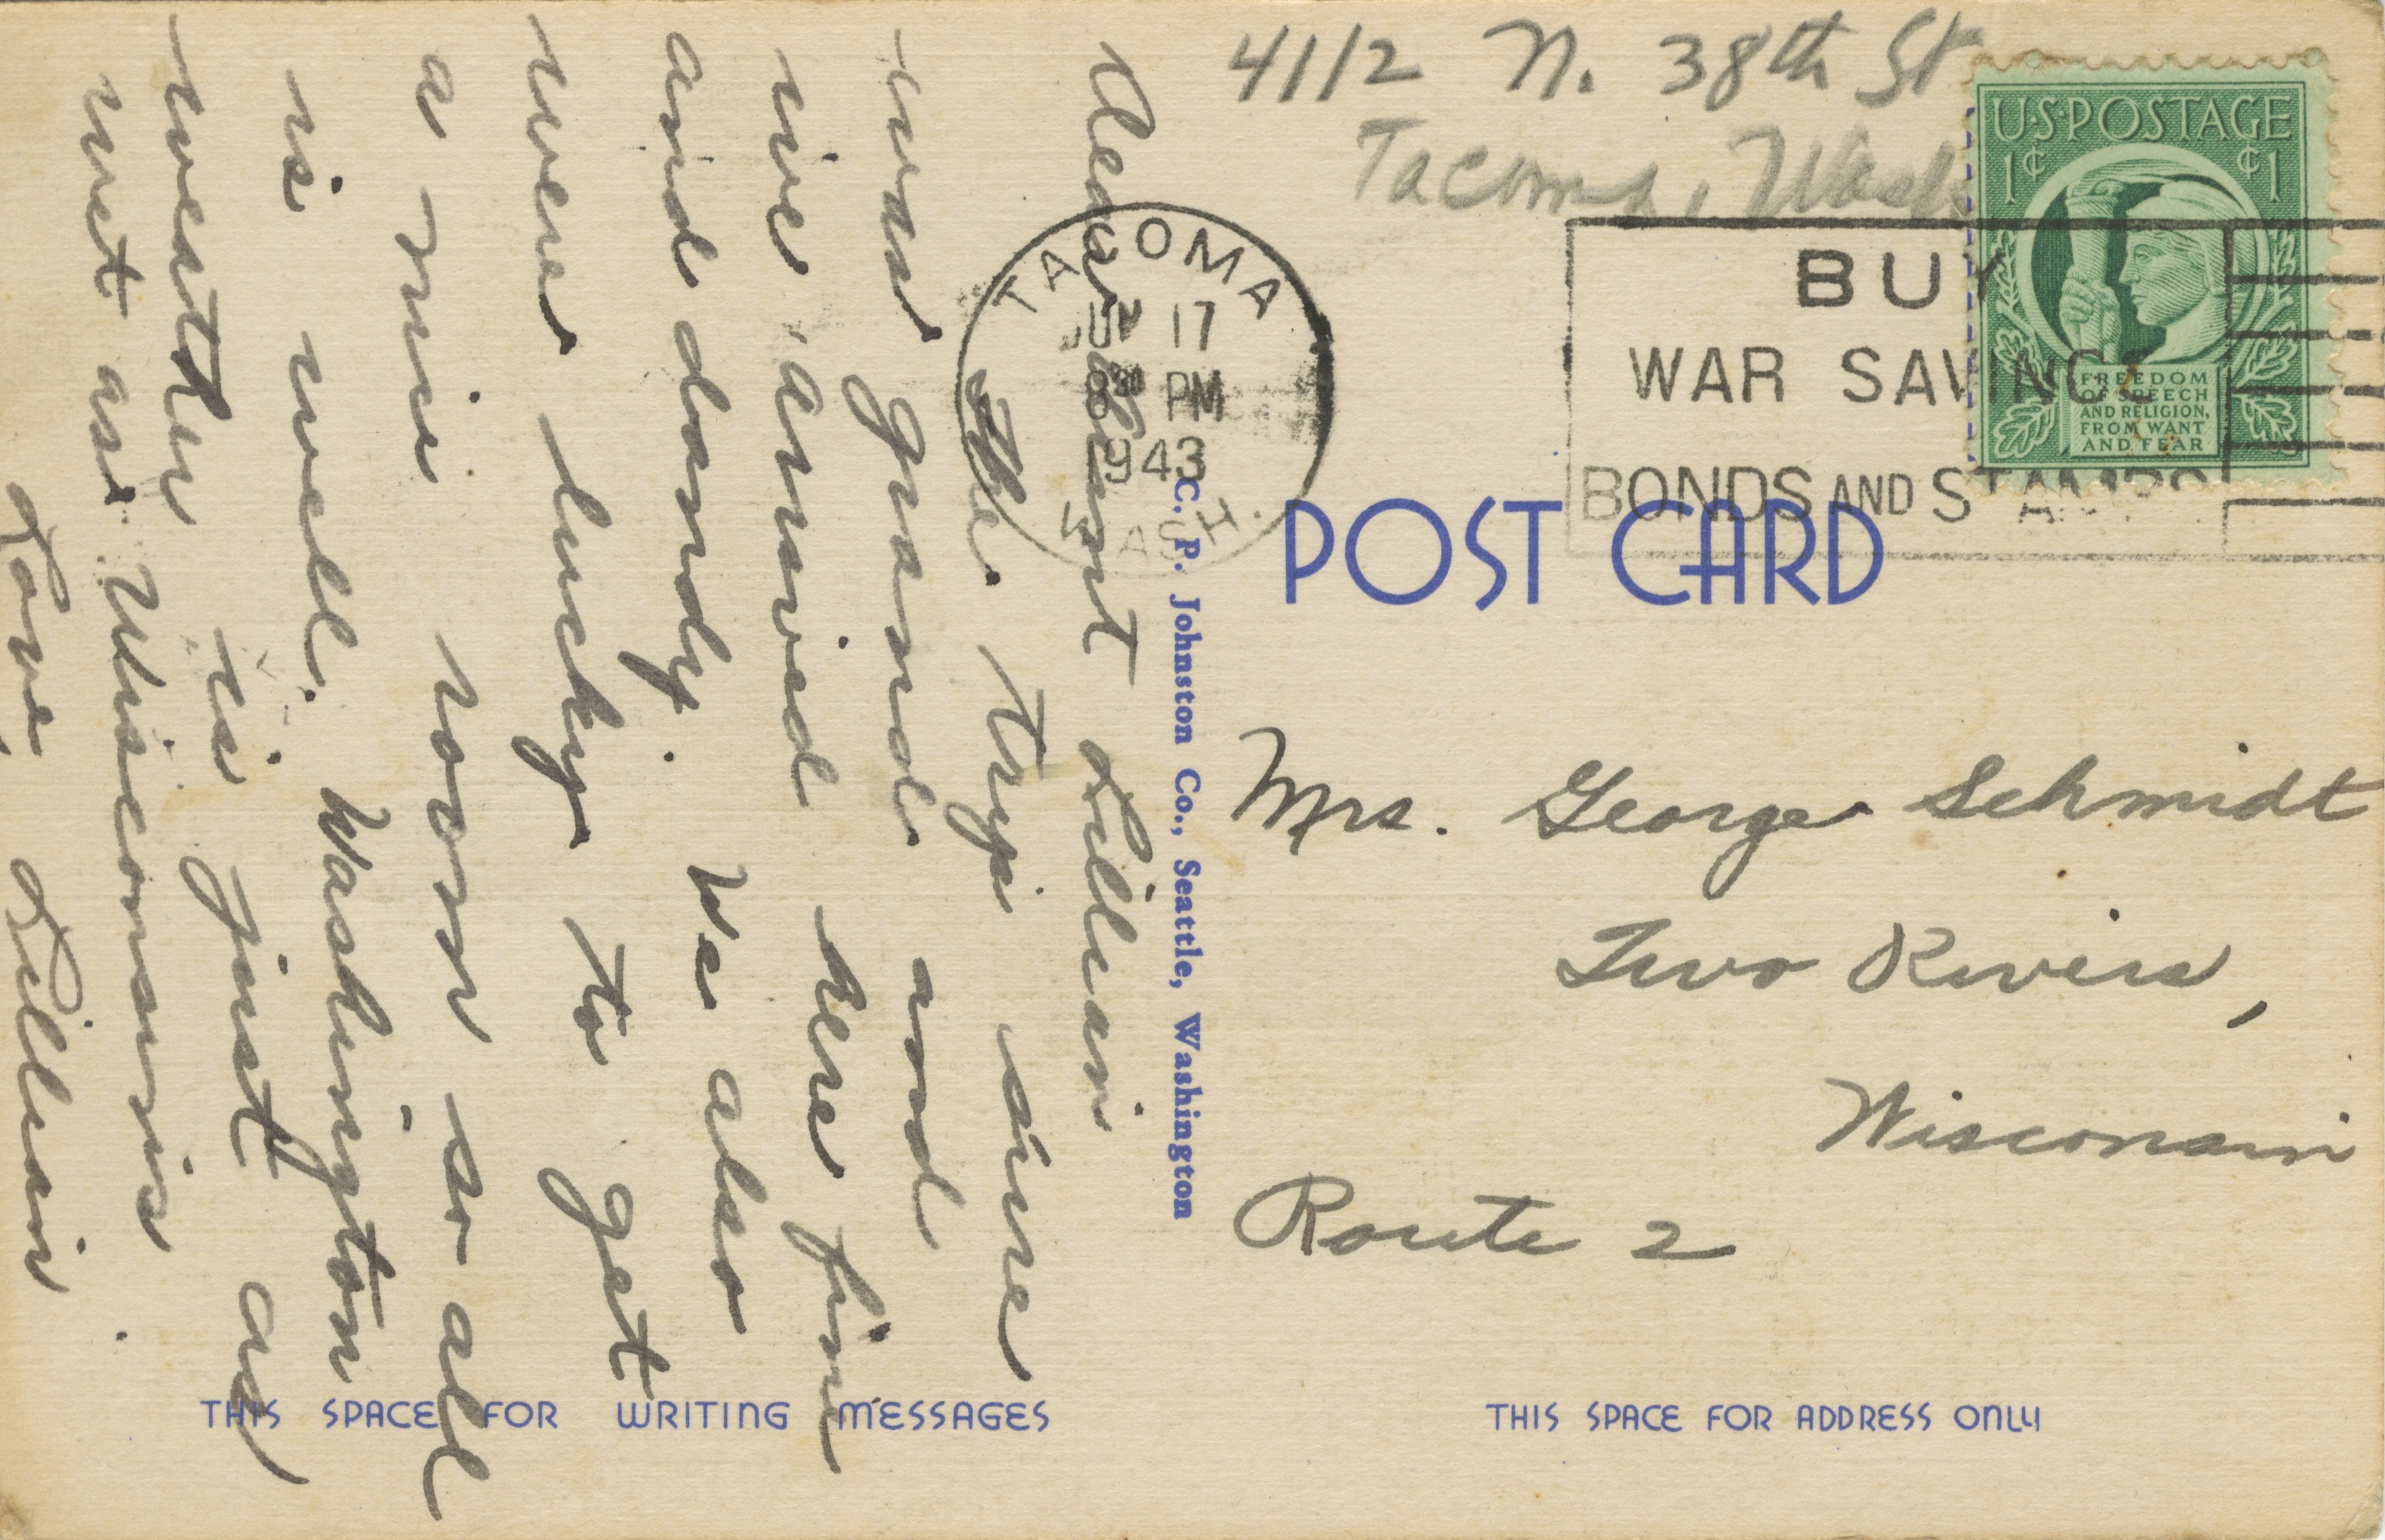 4112 N. 38th St
Tacoma, Wash
U.S. POSTAGE
1¢ ¢1
FREEDOM
OF SPEECH
AND RELIGION,
FROM WANT
AND FEAR
TACOMA
JUN 17
8 PM
1943
WASH.
BUY
WAR SAVINGS
BONDS AND STAMPS
POST CARD
C. P. Johnston Co., Seattle, Washington
Dear Aunt Lillian
The trip sure
was grand and
we arrived here fine
and dandy. We also
were lucky to get
a nice room so all
is well. Washington
weather is just as
wet as Wisconsins.
Love, Lillian
Mrs. George Schmidt
Two Rivers,
Wisconsin
Route 2
THIS SPACE FOR WRITING MESSAGES
THIS SPACE FOR ADDRESS ONLY